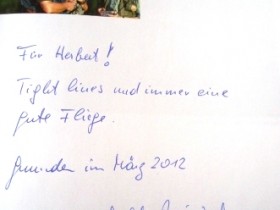 Für Herbert!
Tight lines und immer eine
gute Fliege.
Gmunden im März 2012